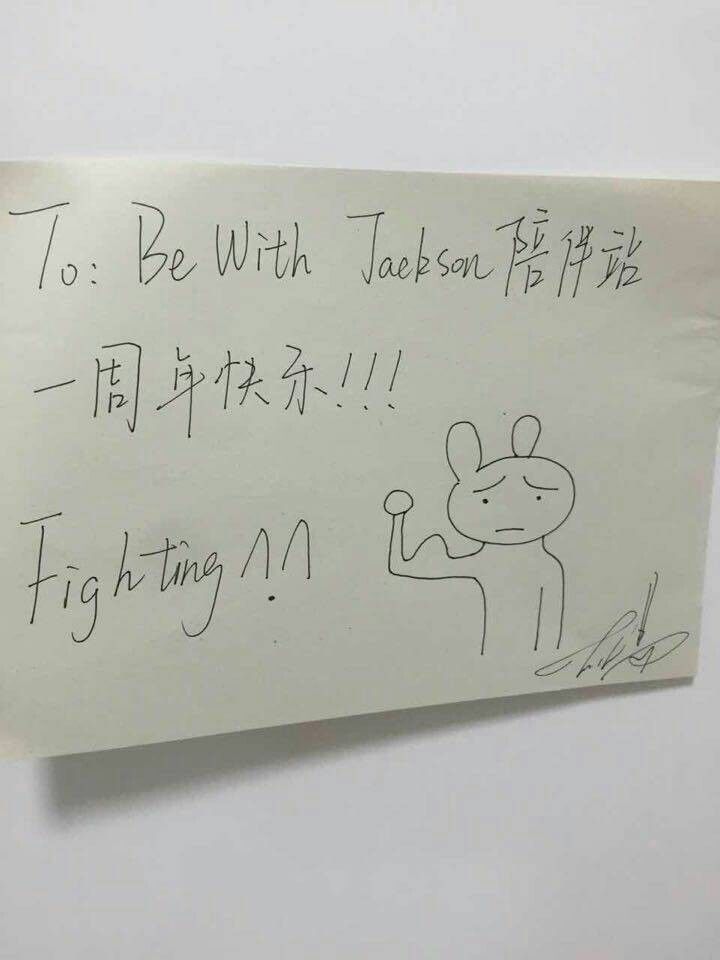 To: Be With Jackson 陪伴站
一周年快乐!!!
Fighting^.^